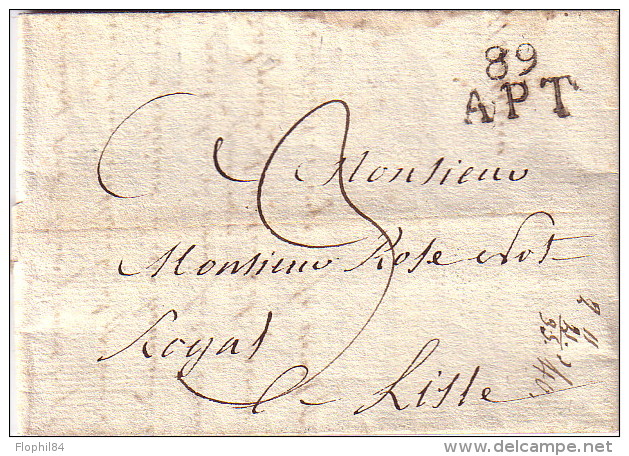 89
APT
3
Monsieur
Monsieur Rose Not
Royal
a Lisle
Flophil84
www.delcampe.net